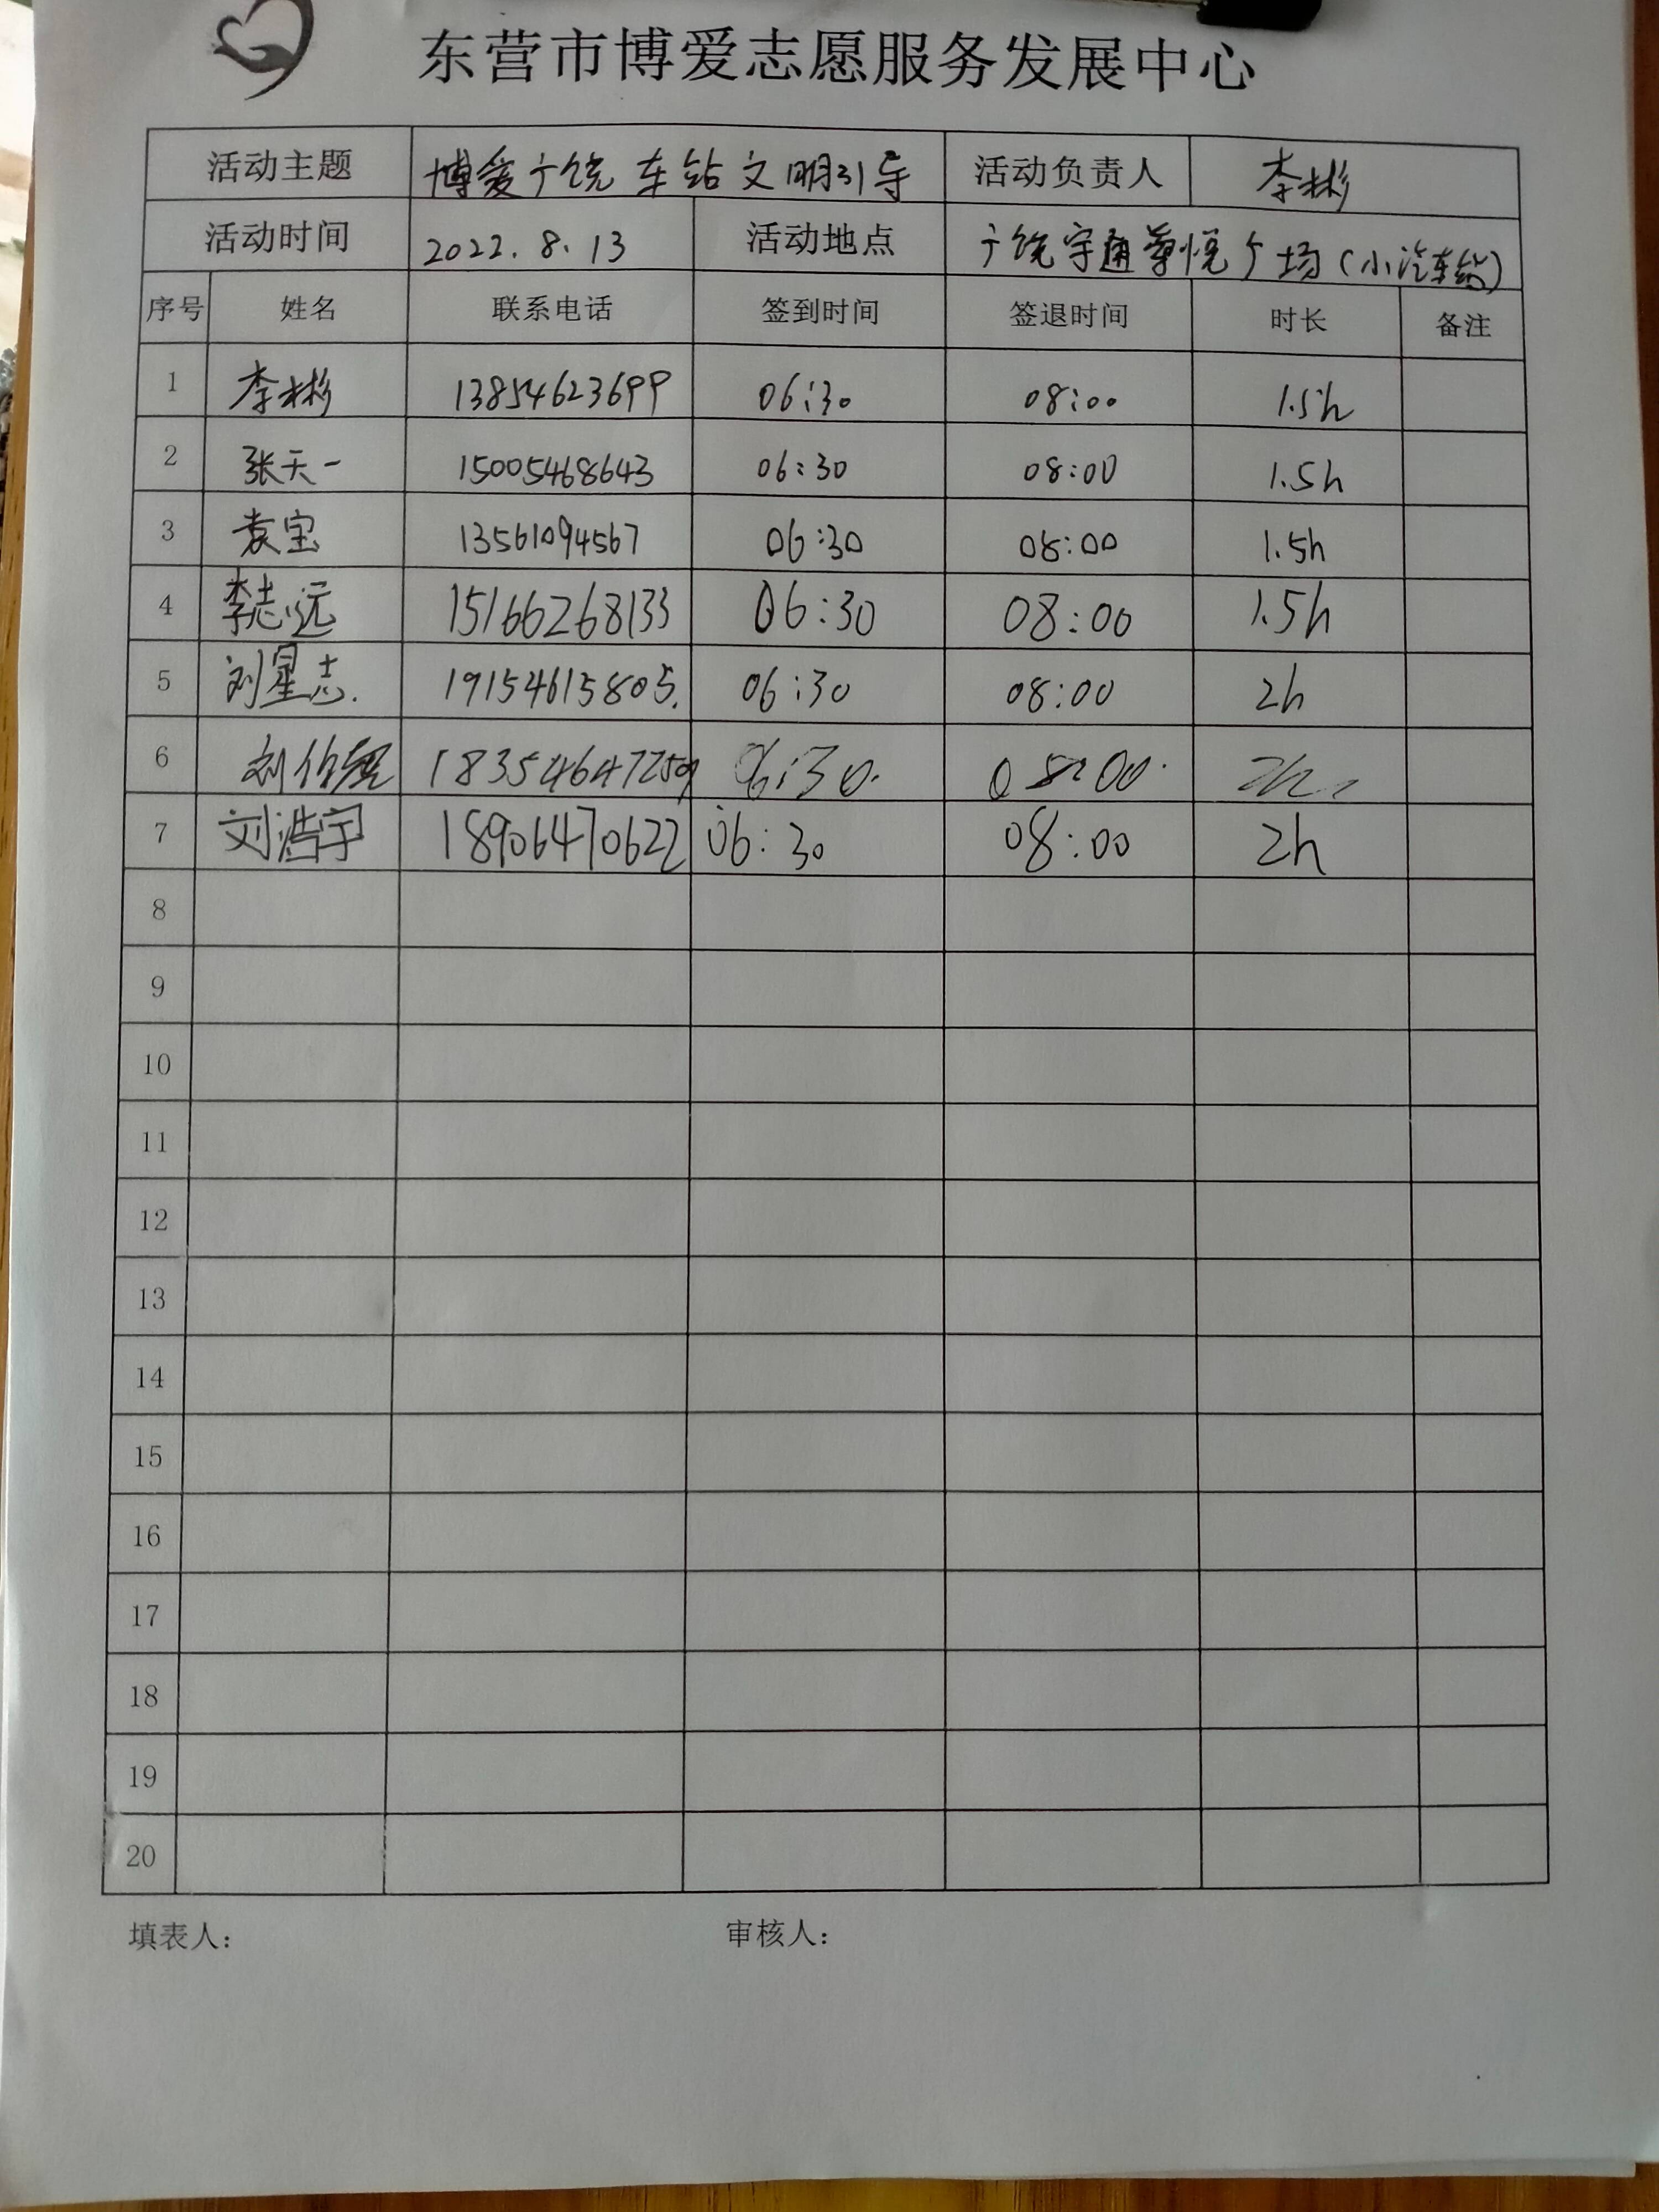 东营市博爱志愿服务发展中心
活动主题 博爱广饶 车站文明引导 活动负责人 李彬
活动时间 2022.8.13 活动地点 广饶宇通尊悦广场(小汽车站)
序号 姓名 联系电话 签到时间 签退时间 时长 备注
1 李彬 13854623699 06:30 08:00 1.5h
2 张天一 15005468643 06:30 08:00 1.5h
3 袁宝 13561094567 06:30 08:00 1.5h
4 李志远 15166268133 06:30 08:00 1.5h
5 刘星志. 19154615805. 06:30 08:00 2h
6 刘 06:30. 08:00. 2h
7 刘浩宇 18906470622 06:30 08:00 2h
8
9
10
11
12
13
14
15
16
17
18
19
20
填表人: 审核人: